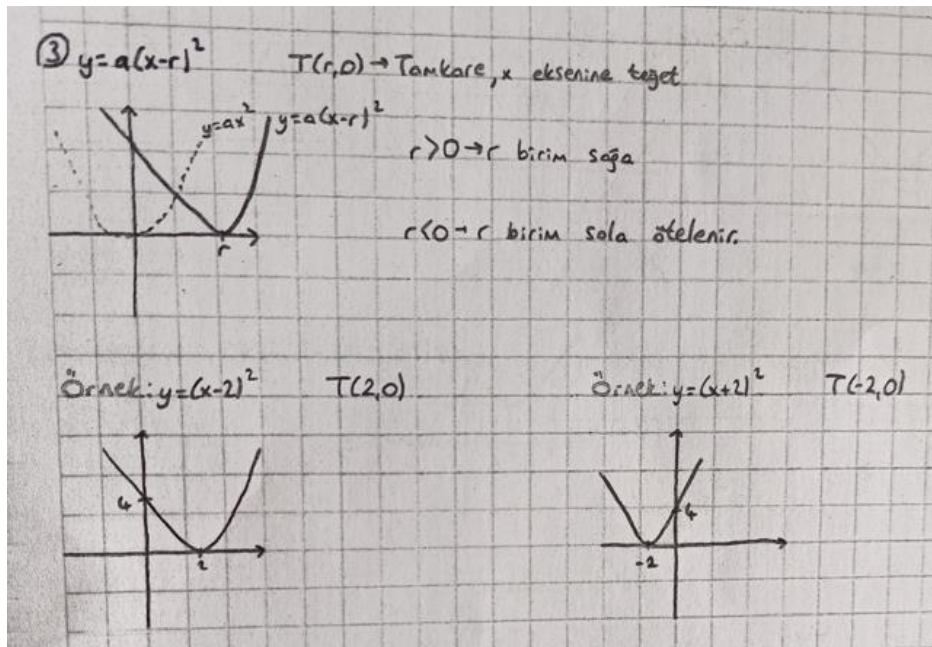 ③ y=a(x-r)² T(r,0) → Tamkare, x eksenine teğet
y=ax² y=a(x-r)²
r>0 → r birim sağa
r<0 → r birim sola ötelenir.
r
Örnek: y=(x-2)² T(2,0)
4
2
Örnek: y=(x+2)² T(-2,0)
4
-2